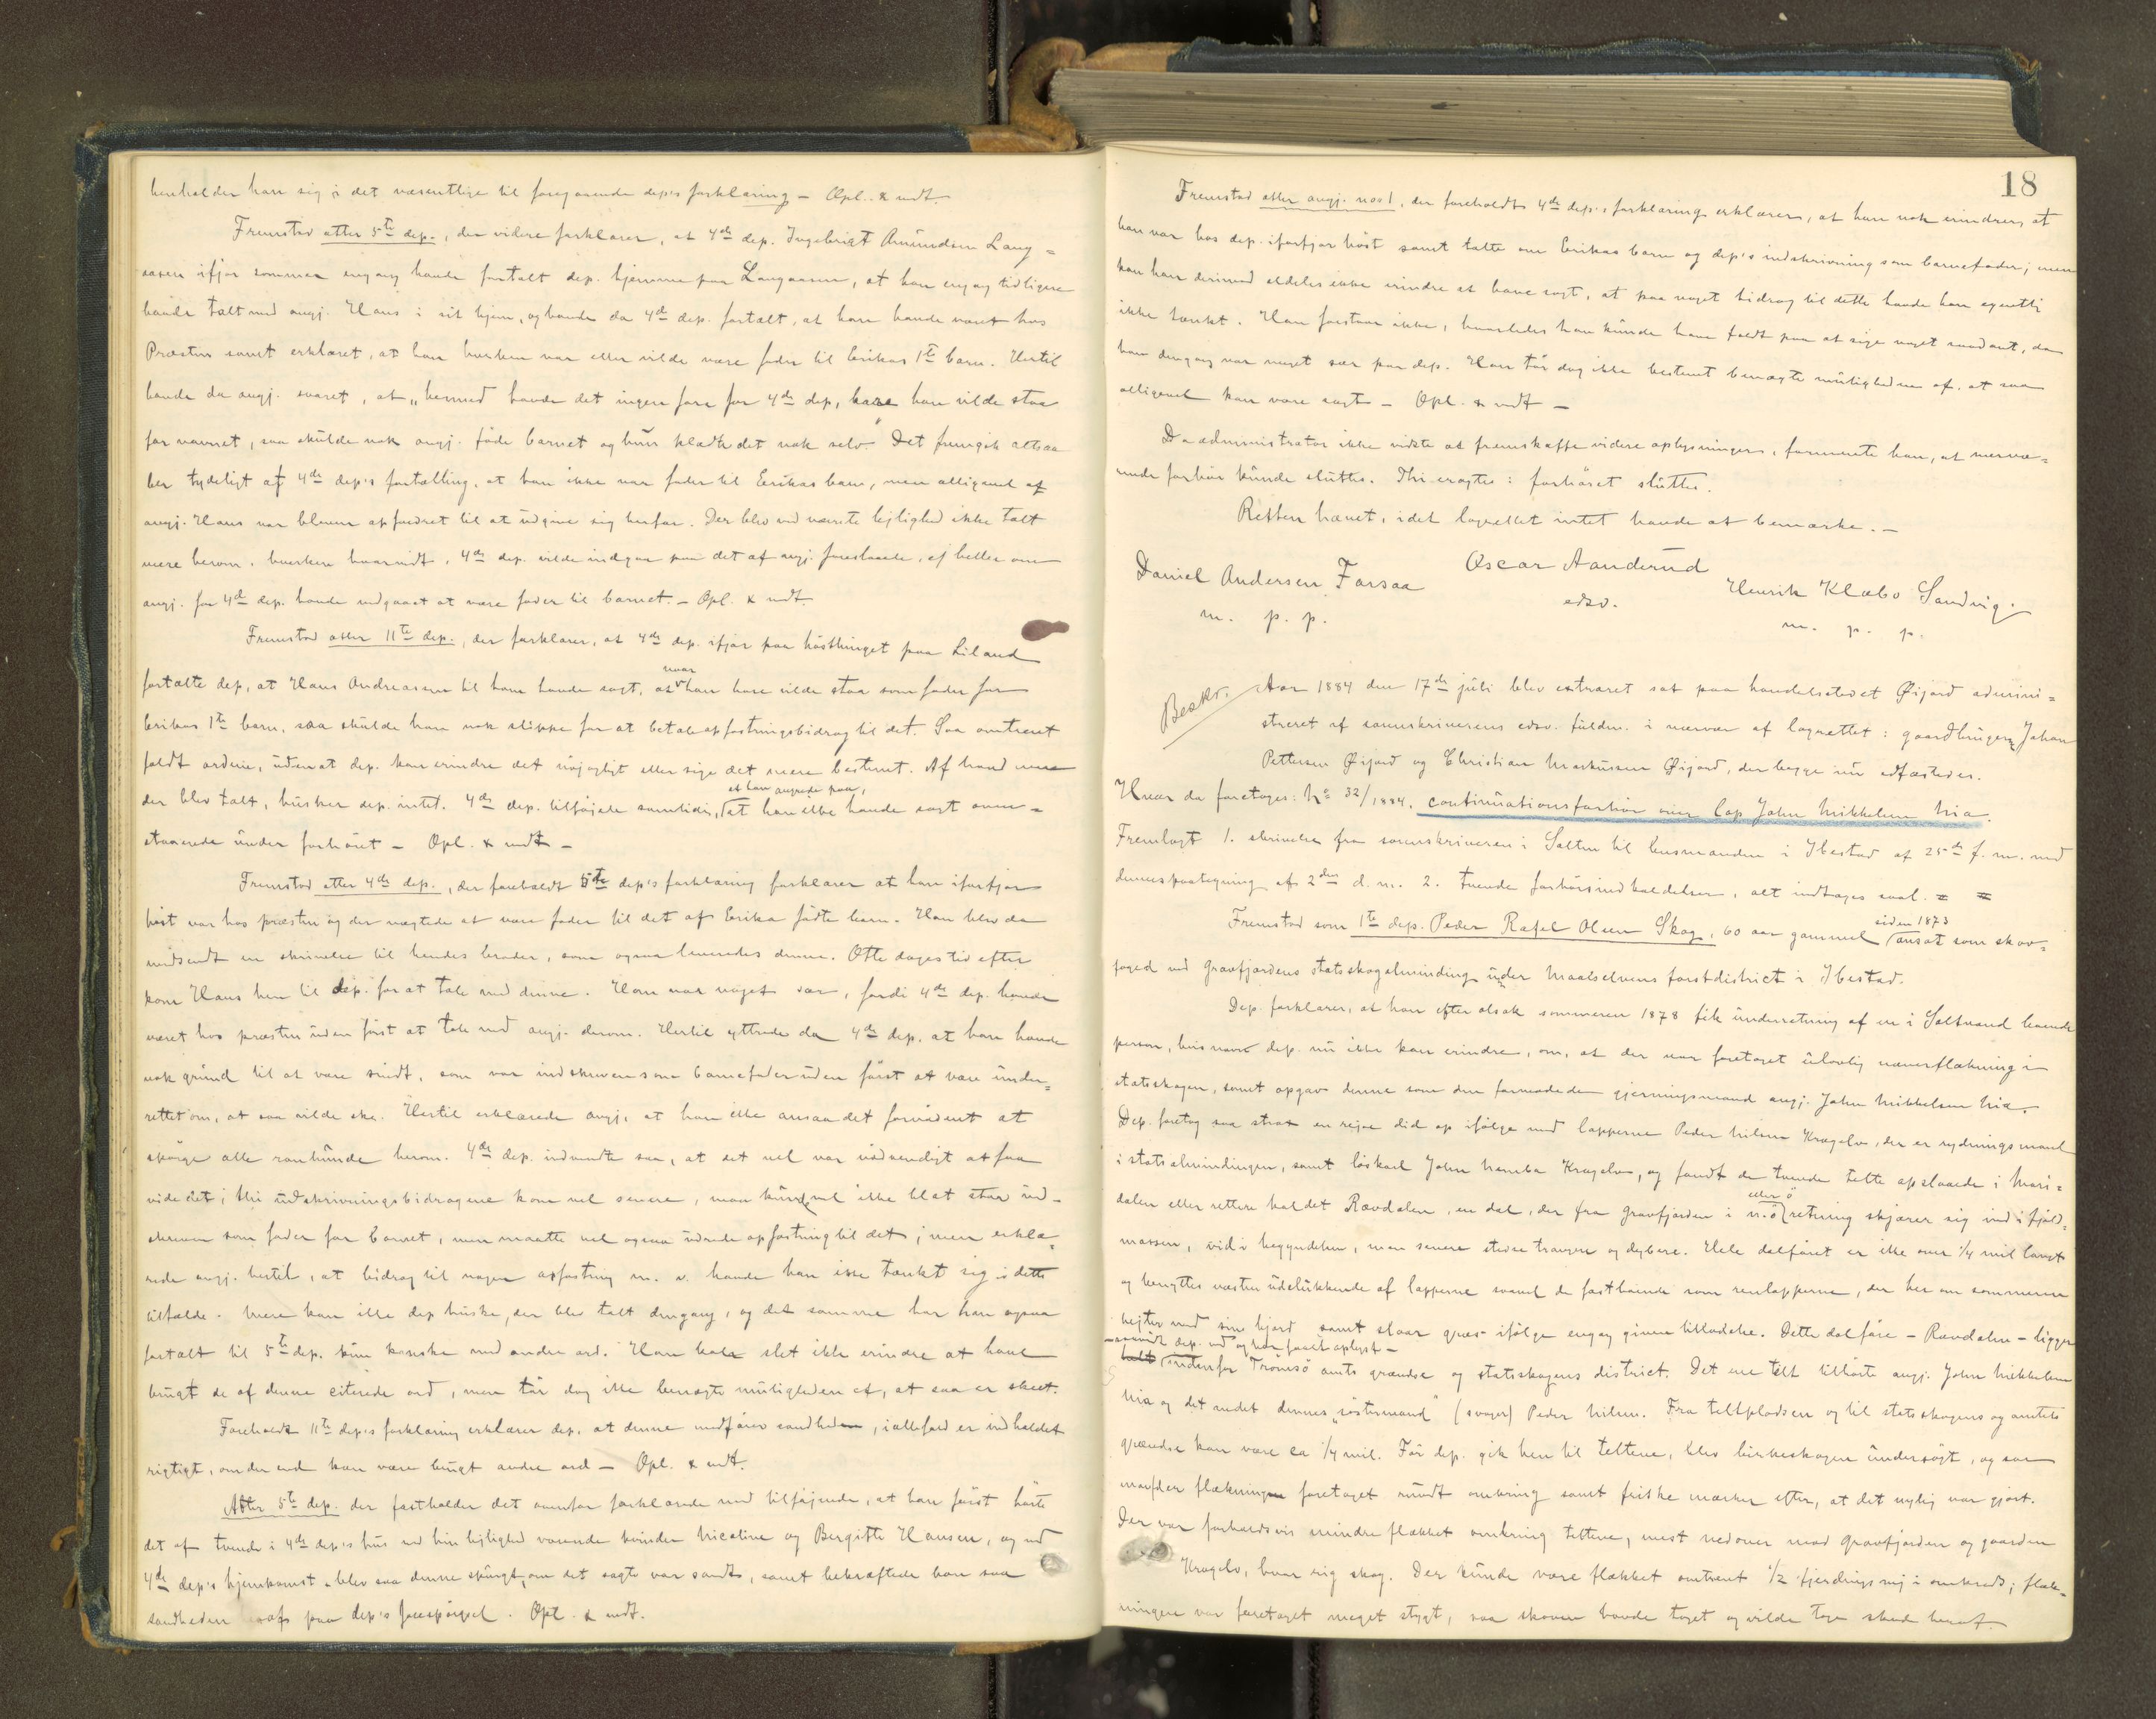 henholder han sig i det væsentlige til foregaaende dep's forklaring – Opl. & vedt.
Fremstod atter 5te dep., der videre forklarer, at 4de dep. Ingebrigt Amundsen Lang=
aasen ifjor sommer engang havde fortalt dep. hjemme paa Langaasen, at han engang tidligere
havde talt med angj. Hans i sit hjem, og havde da 4de dep. fortalt, at han havde været hos
Præsten samt erklæret, at han hverken var eller vilde være fader til Erikas 1te barn. Hertil
havde da angj. svaret, at "hermed havde det ingen fare for 4de dep, bare han vilde staa
for navnet, saa skulde nok angj. føde barnet og hun klædte det nok selv." Det fremgik altsaa
her tydeligt af 4de dep's fortælling, at han ikke var fader til Erikas barn, men alligevel af
angj. Hans var bleven opfordret til at udgive sig herfor. Der blev ved nævnte lejlighed ikke talt
mere herom, hverken hvorvidt 4de dep. vilde indgaa paa det af angj. foreslaaede, ej heller om
angj. for 4de dep. havde vedgaaet at være fader til barnet. – Opl. & vedt.
Fremstod atter 11te dep., der forklarer, at 4de dep. ifjor paa høstthinget paa Liland
fortalte dep, at Hans Andreassen til ham havde sagt, at naar han bare vilde staa som fader for
Erikas 1te barn, saa skulde han nok slippe for at betale opfostringsbidrag til det. Saa omtrent
faldt ordene, uden at dep. kan erindre det nøjagtigt eller sige det mere bestemt. Af hvad mere
der blev talt, husker dep. intet. 4de dep. tilføjede samtidig, at han angrede paa, at han ikke havde sagt oven=
staaende under forhøret – Opl. & vedt –
Fremstod atter 4de dep., der foreholdt 5te dep's forklaring forklarer at han iforfjor
høst var hos præsten og der nægtede at være fader til det af Erika fødte barn. Han blev da
medsendt en skrivelse til hendes broder, som ogsaa leveredes denne. Otte dages tid efter
kom Hans hen til dep. for at tale med denne. Han var noget sær, fordi 4de dep. havde
været hos præsten uden først at tale med angj. derom. Hertil yttrede da 4de dep. at han havde
nok grund til at være vredt, som var indskreven som barnefader uden først at være under=
rettet om, at saa vilde ske. Hertil erklærede angj. at han ikke ansaa det fornødent at
spørge alle herom. 4de dep. indvendte saa, at det vel var nødvendigt at faa
vide det; thi udskrivningsbidragene kom vel senere, man kunde vel ikke blot staa ind=
skreven som fader for barnet, men maatte vel ogsaa udrede opfostring til det; men erklæ=
rede angj. hertil, at bidrag til nogen opfostring m. v. havde han ikke tænkt sig i dette
tilfælde. Mere kan ikke dep huske, der blev talt dengang, og det samme har han ogsaa
fortalt til 5te dep. kun kanske med andre ord. Han kan slet ikke erindre at have
brugt de af denne citerede ord, men tør dog ikke benægte muligheden af, at saa er skeet.
Foreholdt 11te dep's forklaring erklærer dep. at denne medfører sandheden, ialfald er indholdet
rigtigt, om der end kan være brugt andre ord – Opl. & vedt.
Atter 5te dep. der fastholder det ovenfor forklarede med tilføjende, at han først hørte
det af tvende i 4de dep's hus ved hin lejlighed værende kvinder Nicoline og Bergitte Hansen, og ved
4de dep's hjemkomst blev saa denne spurgt, om det sagte var sandt, samt bekræftede han saa
sandheden paa dep's forespørgsel. Opl. & vedt.
18
Fremstod atter angj. no 1, der foreholdt 4de dep.s forklaring erklærer, at han nok erindrer, at
han var hos dep. iforfjor høst samt talte om Erikas barn og dep's indskrivning som barnefader; men
kan han derimod aldeles ikke erindre at have sagt, at paa noget bidrag til dette havde han egentlig
ikke tænkt. Han forstaar ikke, hvorledes han kunde have faldt paa at sige noget saadant, da
han dengang var meget sær paa dep. Han tør dog ikke bestemt benægte muligheden af, at saa
alligevel kan være sagt – Opl. & vedt –
Da administrator ikke vidste at fremskaffe videre oplysninger, formente han, at nærvæ=
rende forhør kunde sluttes. Thi eragtes: forhøret sluttes.
Retten hævet, idet lagrettet intet havde at bemærke. –
Daniel Andersen Forsaa
m. p. p.
Oscar Aanderud
edsv.
Henrik Klæbo Sandvig.
m. p. p.
Beskr.
Aar 1884 den 17de juli blev extraret sat paa handelsstedet Øijord admini=
streret af sorenskriverens edsv. fuldm. i nærvær af lagrettet: gaardbrugerne Johan
Pettersen Øijord og Christian Markussen Øijord, der begge nu edfæstedes.
Hvor da foretoges: No 32/1884, continuationsforhør over lap John Mikkelsen Nia.
Fremlagt 1. skrivelse fra sorenskriveren i Salten til lensmanden i Ibestad af 25de f. m. med
dennes paategning af 2den d. m. 2. tvende forhørsindkaldelser, alt indtages saal. = =
Fremstod som 1te dep. Peder Rafel Olsen Skog, 60 aar gammel siden 1873 ansat som skov=
foged ved Gravfjordens statsskogalminding under Maalselvens forstdistrict i Ibestad.
Dep. forklarer, at han efter olsok sommeren 1878 fik underretning af en i Saltvand boende
person, hvis navn dep. nu ikke kan erindre, om, at der var foretaget ulovlig næverflækning i
statsskogen, samt opgav denne som den formodede gjerningsmand angj. John Mikkelsen Nia.
Dep. foretog saa strax en rejse did op ifølge med lapperne Peder Nilsen Kragelv, der er rydningsmand
i statsalmindingen, samt løskarl John Kragelv, og fandt de tvende telte opslaaede i Mari=
dalen eller rettere kaldet Rævdalen, en dal, der fra Gravfjorden i n.ø. eller ø retning skjærer sig ind i fjeld=
massen, vid i begyndelsen, men senere stedse trangere og dybere. Hele dalføret er ikke over 1/4 mil langt
og benyttes næsten udelukkende af lapperne saavel de fastboende som renlapperne, der her om sommeren
bejter med sin hjord samt slaar græs ifølge engang given tilladelse. Dette dalføre – Rævdalen – ligger
– saavidt dep. ved og har faaet oplyst –
indenfor Tromsø amts grændse og statsskogens district. Det ene telt tilhørte angj. John Mikkelsen
Nia og det andet dennes "søstermand" (svoger) Peder Nilsen. Fra teltpladsen og til statsskogens og amtets
grændse kan være ca 1/4 mil. Før dep. gik hen til teltene, blev birkeskogen undersøgt, og saa
man der flækningen foretaget rundt omkring samt friske mærker efter, at det nylig var gjort.
Der var forholdsvis mindre flækket omkring teltene, mest nedover mod Gravfjorden og gaarden
Kragelv, hvor sig skog. Der kunde være flækket omtrent 1/2 fjerdingsvej i omkreds; flæk=
ningen var foretaget meget stygt, saa skoven havde taget og vilde tage skade heraf.